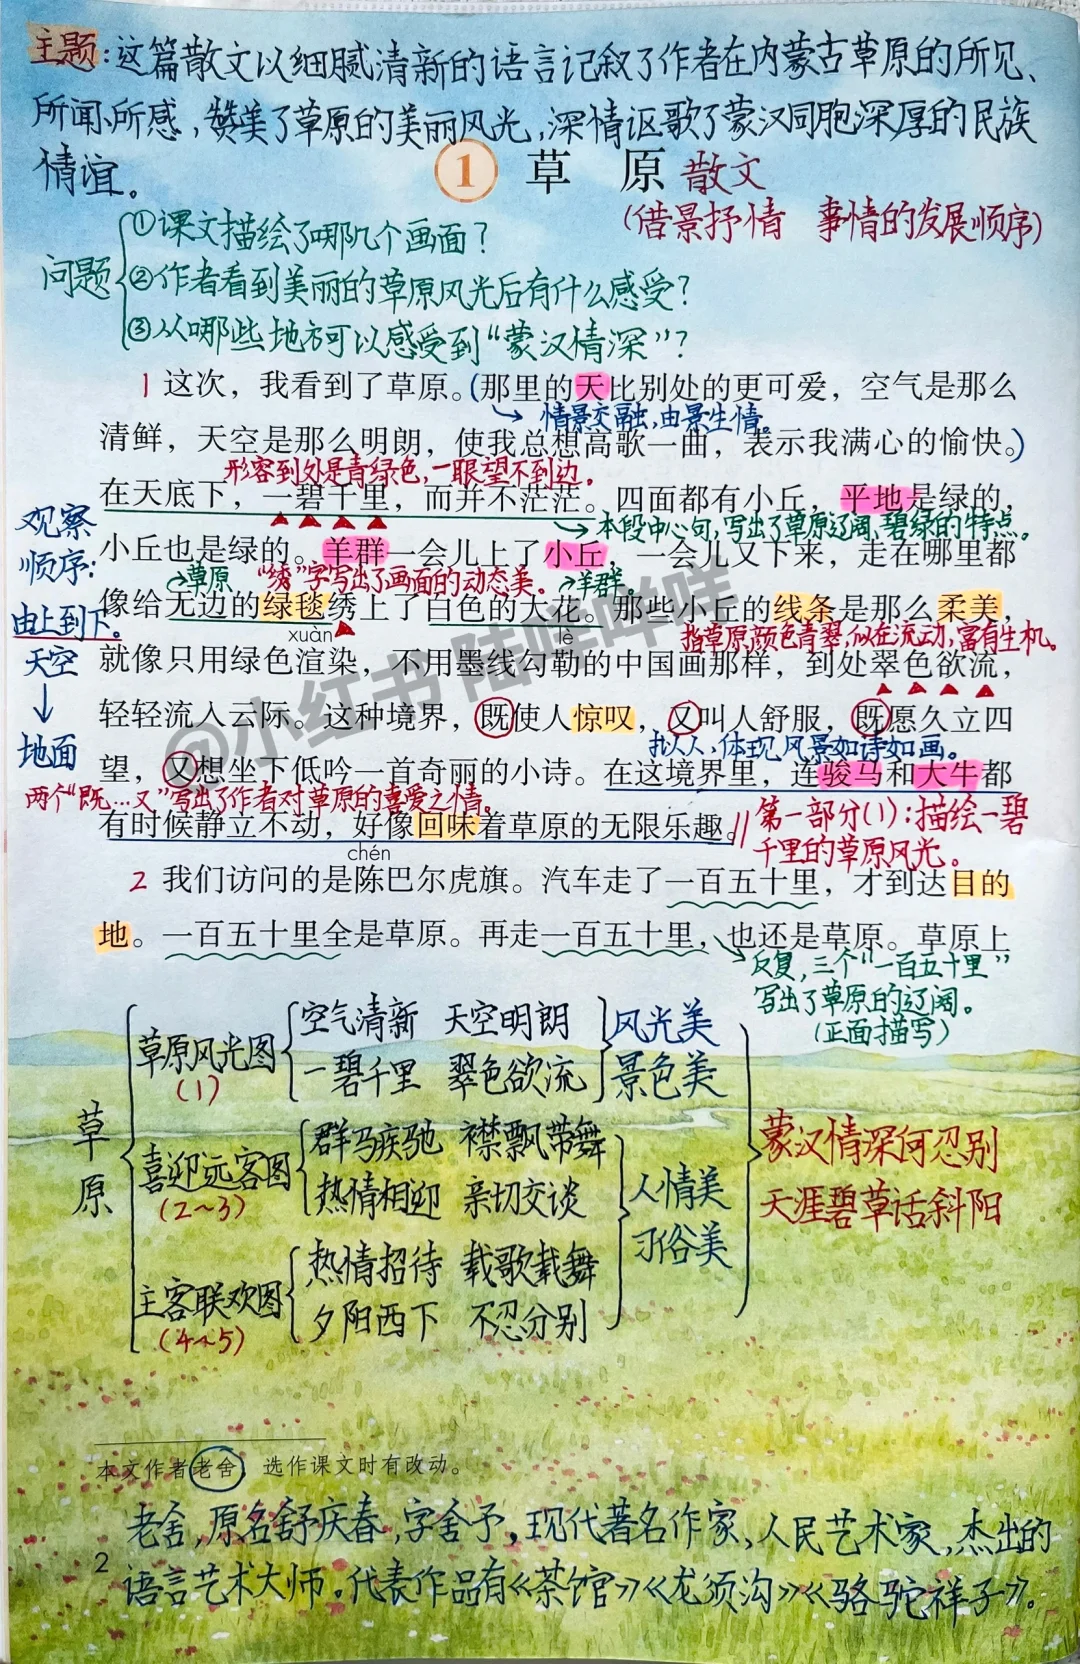 主题：这篇散文以细腻清新的语言记叙了作者在内蒙古草原的所见、
所闻、所感，赞美了草原的美丽风光，深情讴歌了蒙汉同胞深厚的民族
情谊。
1 草 原 散文
(借景抒情 事情的发展顺序)
问题
①课文描绘了哪几个画面？
②作者看到美丽的草原风光后有什么感受？
③从哪些地方可以感受到“蒙汉情深”？
1 这次，我看到了草原。(那里的天比别处的更可爱，空气是那么
情景交融，由景生情。
清鲜，天空是那么明朗，使我总想高歌一曲，表示我满心的愉快。)
形容到处是青绿色，一眼望不到边。
在天底下，一碧千里，而并不茫茫。四面都有小丘，平地是绿的，
本段中心句，写出了草原辽阔、碧绿的特点。
小丘也是绿的。羊群一会儿上了小丘，一会儿又下来，走在哪里都
草原 “绣”字写出了画面的动态美。 羊群。
像给无边的绿毯绣上了白色的大花。那些小丘的线条是那么柔美，
xuàn lè
指草原颜色青翠，似在流动，富有生机。
就像只用绿色渲染，不用墨线勾勒的中国画那样，到处翠色欲流，
轻轻流入云际。这种境界，既使人惊叹，又叫人舒服，既愿久立四
拟人、体现风景如诗如画。
望，又想坐下低吟一首奇丽的小诗。在这境界里，连骏马和大牛都
两个“既…又”写出了作者对草原的喜爱之情。
有时候静立不动，好像回味着草原的无限乐趣。
第一部分(1)：描绘一碧
千里的草原风光。
观察
顺序：
由上到下。
天空
↓
地面
chén
2 我们访问的是陈巴尔虎旗。汽车走了一百五十里，才到达目的
地。一百五十里全是草原。再走一百五十里，也还是草原。草原上
反复，三个“一百五十里”
写出了草原的辽阔。
(正面描写)
草原
草原风光图
(1)
空气清新 天空明朗
一碧千里 翠色欲流
风光美
景色美
喜迎远客图
(2~3)
群马疾驰 襟飘带舞
热情相迎 亲切交谈
主客联欢图
(4~5)
热情招待 载歌载舞
夕阳西下 不忍分别
人情美
习俗美
蒙汉情深何忍别
天涯碧草话斜阳
本文作者老舍，选作课文时有改动。
老舍，原名舒庆春，字舍予，现代著名作家，人民艺术家，杰出的
语言艺术大师。代表作品有《茶馆》《龙须沟》《骆驼祥子》。
2
@小红书 陆哞哞咩